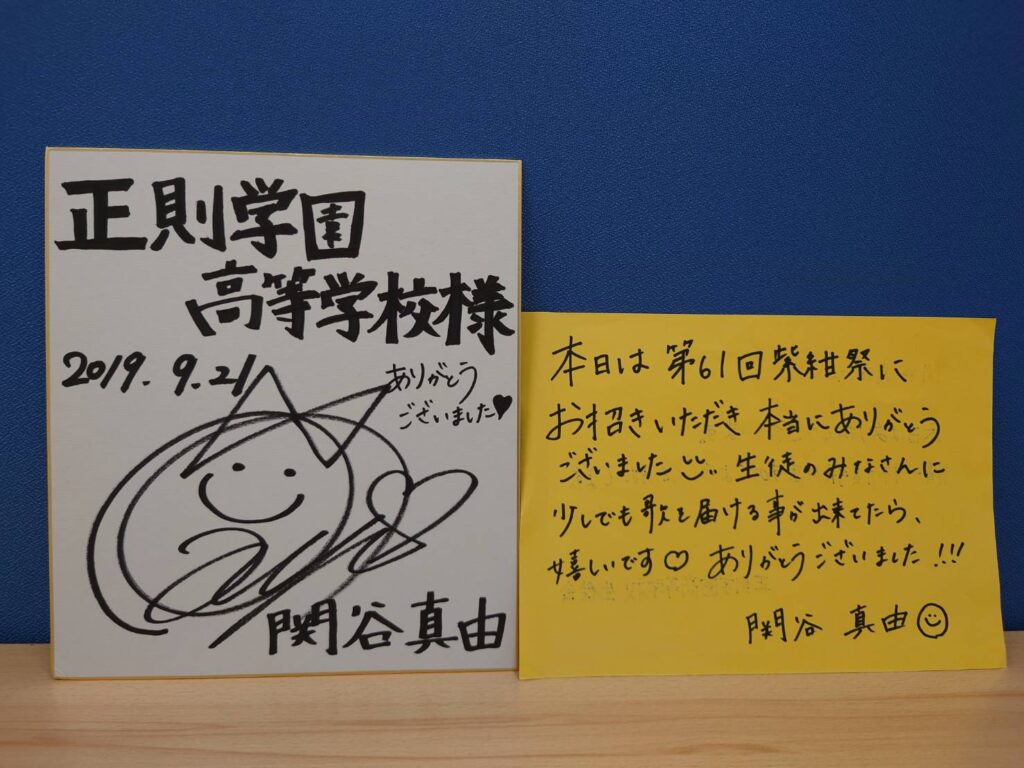 正則学園
高等学校様
2019. 9. 21
ありがとう
ございました♥
関谷真由
本日は 第61回紫紺祭に
お招きいただき 本当にありがとう
ございました 生徒のみなさんに
少しでも歌を届ける事が出来てたら、
嬉しいです♡ ありがとうございました!!!
関谷 真由